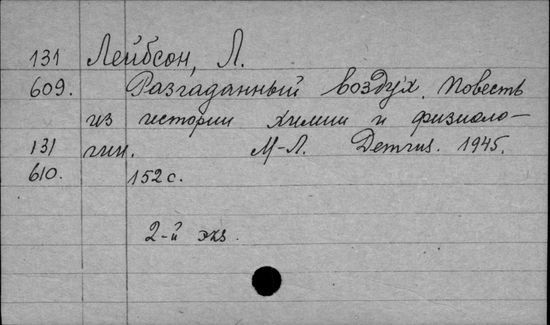 131 Лейбсон, Л.
609. Разгаданный воздух. Повесть
из истории химии и физиоло-
131 гии. М-Л. Детгиз. 1945.
610. 152 с.
2-й экз.